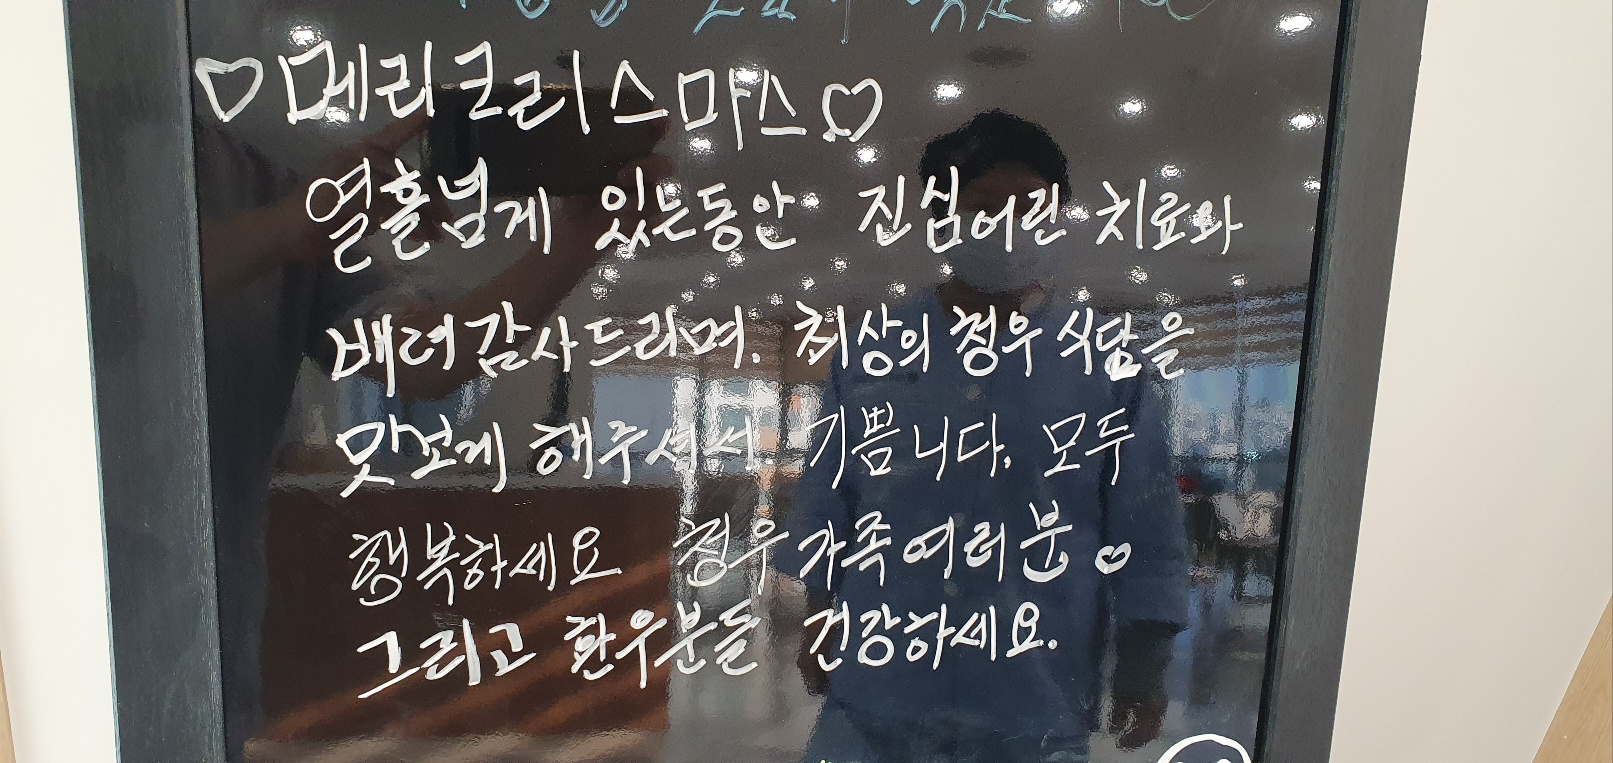 ♡메리크리스마스♡
열흘넘게 있는동안 진심어린 치료와
배려감사드리며. 최상의 청우 식담을
맛보게 해주셔서. 기쁩니다. 모두
행복하세요 청우가족여러분♡
그리고 환우분들 건강하세요.